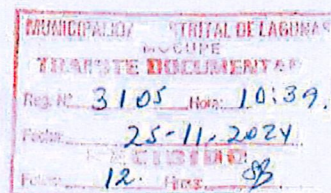 MUNICIPALIDA STRITAL DE LAGUNAS
MOCUPE
TRAMITE DOCUMENTAR
Reg. Nº 3105 Hora: 10:39.
Fecha: 25-11-2024
RECIBIDO
Folio: 12. Firma: